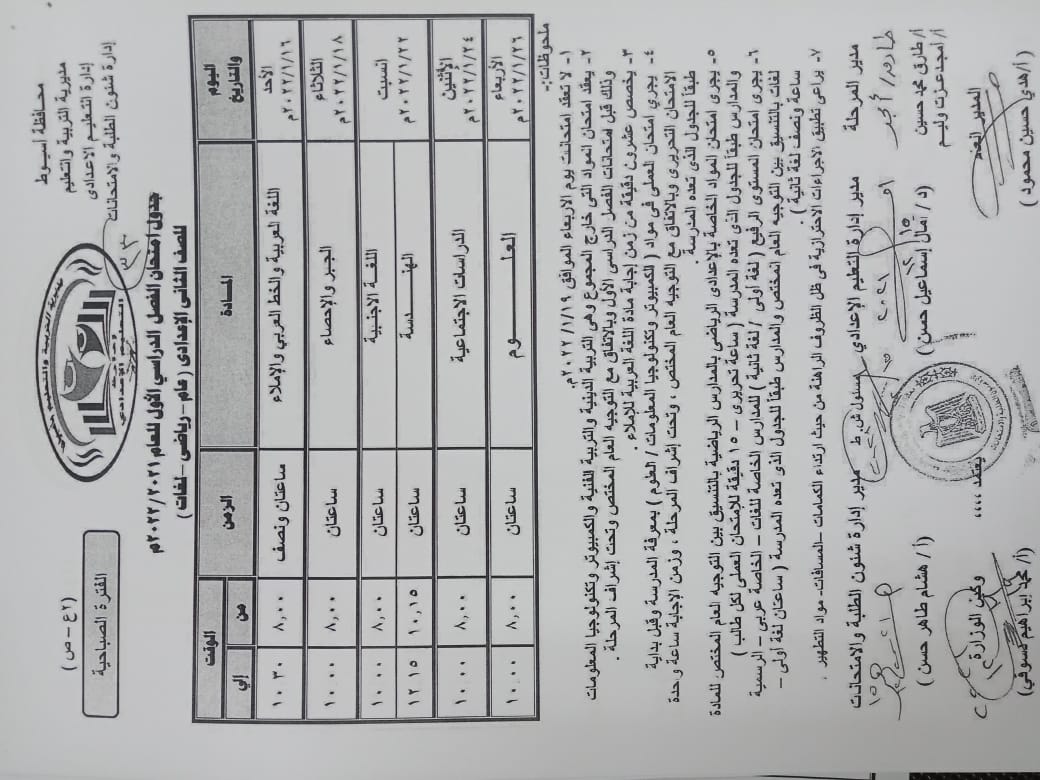 محافظة أسيوط
مديرية التربية والتعليم
إدارة التعليم الاعدادى
إدارة شئون الطلبة والامتحانات
(٢ع – ص)
الفترة الصباحية
جدول إمتحان الفصل الدراسي الأول للعام ٢٠٢٢/٢٠٢١م
للصف الثانى الإعدادى ( عام – رياضى – لغات )
اليوم والتاريخ المادة الزمن الوقت
من إلي
الأحد ٢٠٢٢/١/١٦م اللغة العربية والخط العربي والإملاء ساعتان ونصف ٨,٠٠ ١٠ ٣٠
الثلاثاء ٢٠٢٢/١/١٨م الجبر والإحصاء ساعتان ٨,٠٠ ١٠ ٠٠
السبت ٢٠٢٢/١/٢٢م اللغـة الاجنبية ساعتان ٨,٠٠ ١٠ ٠٠
الهندسة ساعتان ١٠,١٥ ١٢ ١٥
الإثنين ٢٠٢٢/١/٢٤م الدراسات الاجتماعية ساعتان ٨,٠٠ ١٠ ٠٠
الأربعاء ٢٠٢٢/١/٢٦م العلـــــوم ساعتان ٨,٠٠ ١٠,٠٠
ملحوظات:-
١- لا تعقد امتحانات يوم الاربعاء الموافق ٢٠٢٢/١/١٩م.
٢- يعقد امتحان المواد التى خارج المجموع وهى التربية الدينية والتربية الفنية والكمبيوتر وتكنولوجيا المعلومات
وذلك قبل امتحانات الفصل الدراسى الأول وبالاتفاق مع التوجيه العام المختص وتحت إشراف المرحلة .
٣- يخصص عشرون دقيقة من زمن إجابة مادة اللغة العربية للإملاء.
٤- يجرى امتحان العملى فى مواد ( الكمبيوتر وتكنولوجيا المعلومات / العلوم ) بمعرفة المدرسة وقبل بداية
الامتحان التحريرى وبالاتفاق مع التوجيه العام المختص ، وتحت إشراف المرحلة ، وزمن الاجابة ساعة واحدة
طبقاً للجدول الذى تعده المدرسة .
٥- يجرى امتحان المواد الخاصة بالإعدادى الرياضى بالمدارس الرياضية بالتنسيق بين التوجيه العام المختص للمادة
والمدارس طبقاً للجدول الذى تعده المدرسة ( ساعة تحريرى – ١٥ دقيقة للإمتحان العملى لكل طالب )
٦- يجرى امتحان المستوى الرفيع ( لغة أولى / لغة ثانية ) للمدارس الخاصة للغات – الخاصة عربى – الرسمية
لغات بالتنسيق بين التوجيه العام المختص والمدارس طبقاً للجدول الذى تعده المدرسة ( ساعتان لغة أولى –
ساعة ونصف لغة ثانية ) .
٧- يراعى تطبيق الاجراءات الاحترازية فى ظل الظروف الراهنة من حيث ارتداء الكمامات –المسافات- مواد التطهير .
مدير المرحلة مدير إدارة التعليم الإعدادي مسئول ش. ط مدير إدارة شئون الطلبة والامتحانات
أ/ طارق محمد حسين (د / آمال إسماعيل حسن ) (أ / هشام طاهر حسن )
أ/ أمجد عزت وليم
يعتمد ،،،،
المدير العام وكيل الوزارة
(أ / هدي حسين محمود ) (أ/ محمد ابراهيم دسوقي)